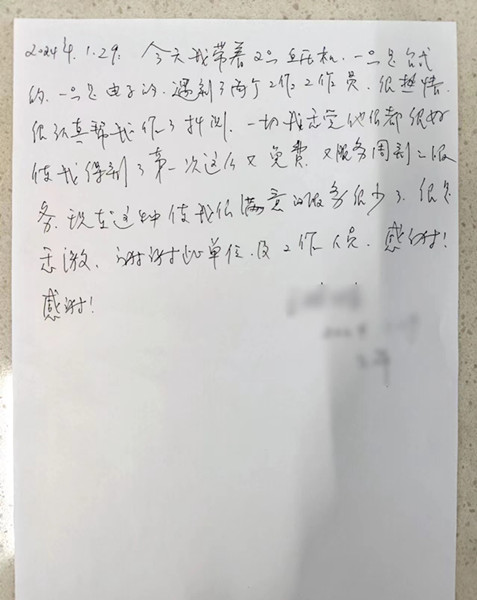 2024年.1.29. 今天我带着2只血压机.一只是台式
的.一只是电子的.遇到了两个工作工作员.很热情.
很认真帮我作了抖测.一切我感觉他们都很好
使我得到了第一次这么又免费.又服务周到的服
务.现在这种使我们满意的服务很少了.很是
感激.谢谢此单位.及工作人员.感谢!
感谢!